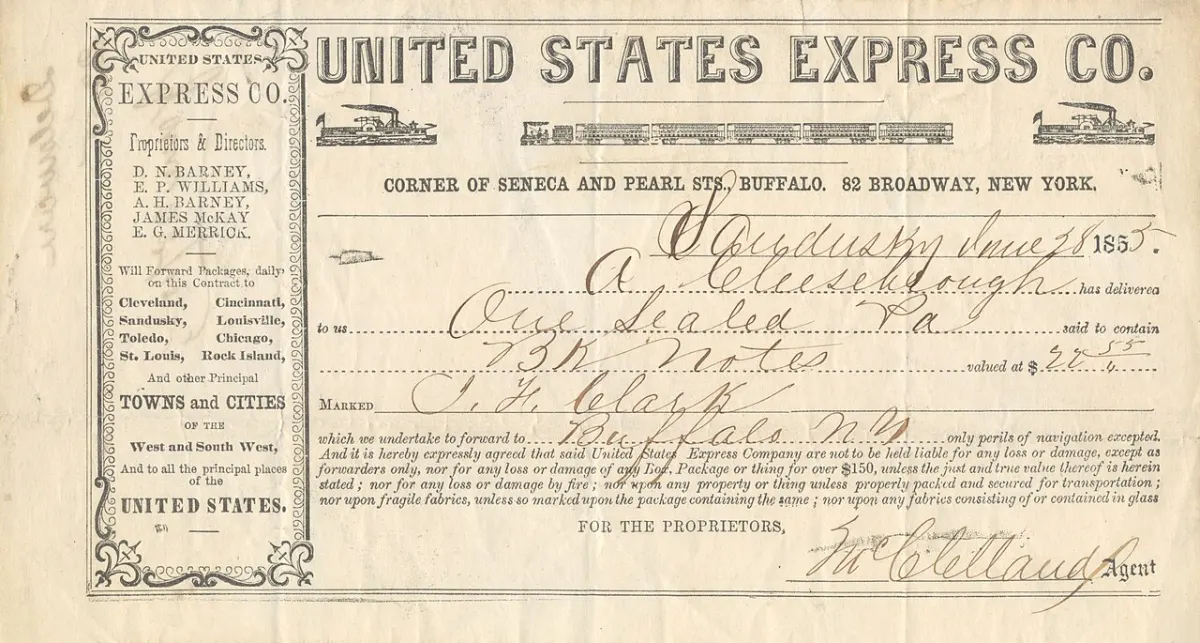 UNITED STATES
EXPRESS CO.
Proprietors & Directors.
D. N. BARNEY,
E. P. WILLIAMS,
A. H. BARNEY,
JAMES McKAY
E. G. MERRICK.
Will Forward Packages, daily,
on this Contract to
Cleveland, Cincinnati,
Sandusky, Louisville,
Toledo, Chicago,
St. Louis, Rock Island,
And other Principal
TOWNS and CITIES
OF THE
West and South West,
And to all the principal places
of the
UNITED STATES.
UNITED STATES EXPRESS CO.
CORNER OF SENECA AND PEARL STS., BUFFALO. 82 BROADWAY, NEW YORK.
Sandusky June 28 1855.
A Cheesebrough has delivered
to us One Sealed Pa said to contain
BK Notes valued at $ 22 55
MARKED J. F. Clark
which we undertake to forward to Buffalo NY only perils of navigation excepted.
And it is hereby expressly agreed that said United States Express Company are not to be held liable for any loss or damage, except as
forwarders only, nor for any loss or damage of any Box, Package or thing for over $150, unless the just and true value thereof is herein
stated; nor for any loss or damage by fire; nor upon any property or thing unless properly packed and secured for transportation;
nor upon fragile fabrics, unless so marked upon the package containing the same; nor upon any fabrics consisting of or contained in glass
FOR THE PROPRIETORS,
McClelland Agent